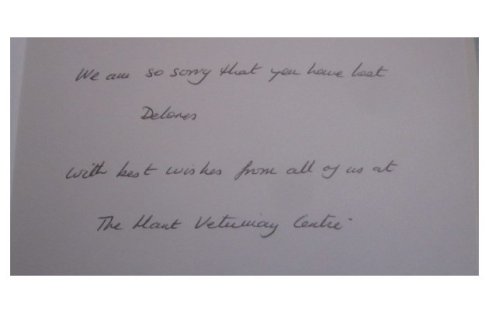 We are so sorry that you have lost
Delores
with best wishes from all of us at
The Veterinary Centre